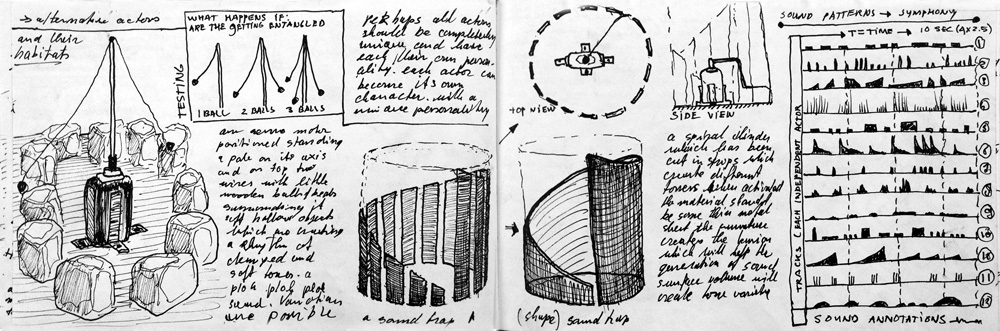 → alternative actors
and their
habitats
TESTING
WHAT HAPPENS IF:
ARE THE GETTING ENTANGLED
1 BALL 2 BALLS 3 BALLS
perhaps all actors
should be completely
unique and have
each their own person-
ality. each actor can
become its own
character. with a
unique personality
an servo motor
positioned standing
a pole on its axis
and on top two
wires with little
wooden balls
surrounding it
hollow objects
which are creating
a rhythm of
and
soft tones. a
plok plok plok
sound. variations
are possible
a sound trap A
TOP VIEW
SIDE VIEW
(shape) sound trap
a spiral cilinder
which has been
cut in strips which
create different
tones when activated
the material should
be some thin metal
sheet the curvature
creates the tension
which will the
generation of sound
surface volume will
create tone
SOUND PATTERNS → SYMPHONY
→ T=TIME → 10 SEC (4X2.5)
TRACKS EACH INDEPENDENT ACTOR
1
2
3
5
6
7
8
9
10
11
SOUND ANNOTATIONS